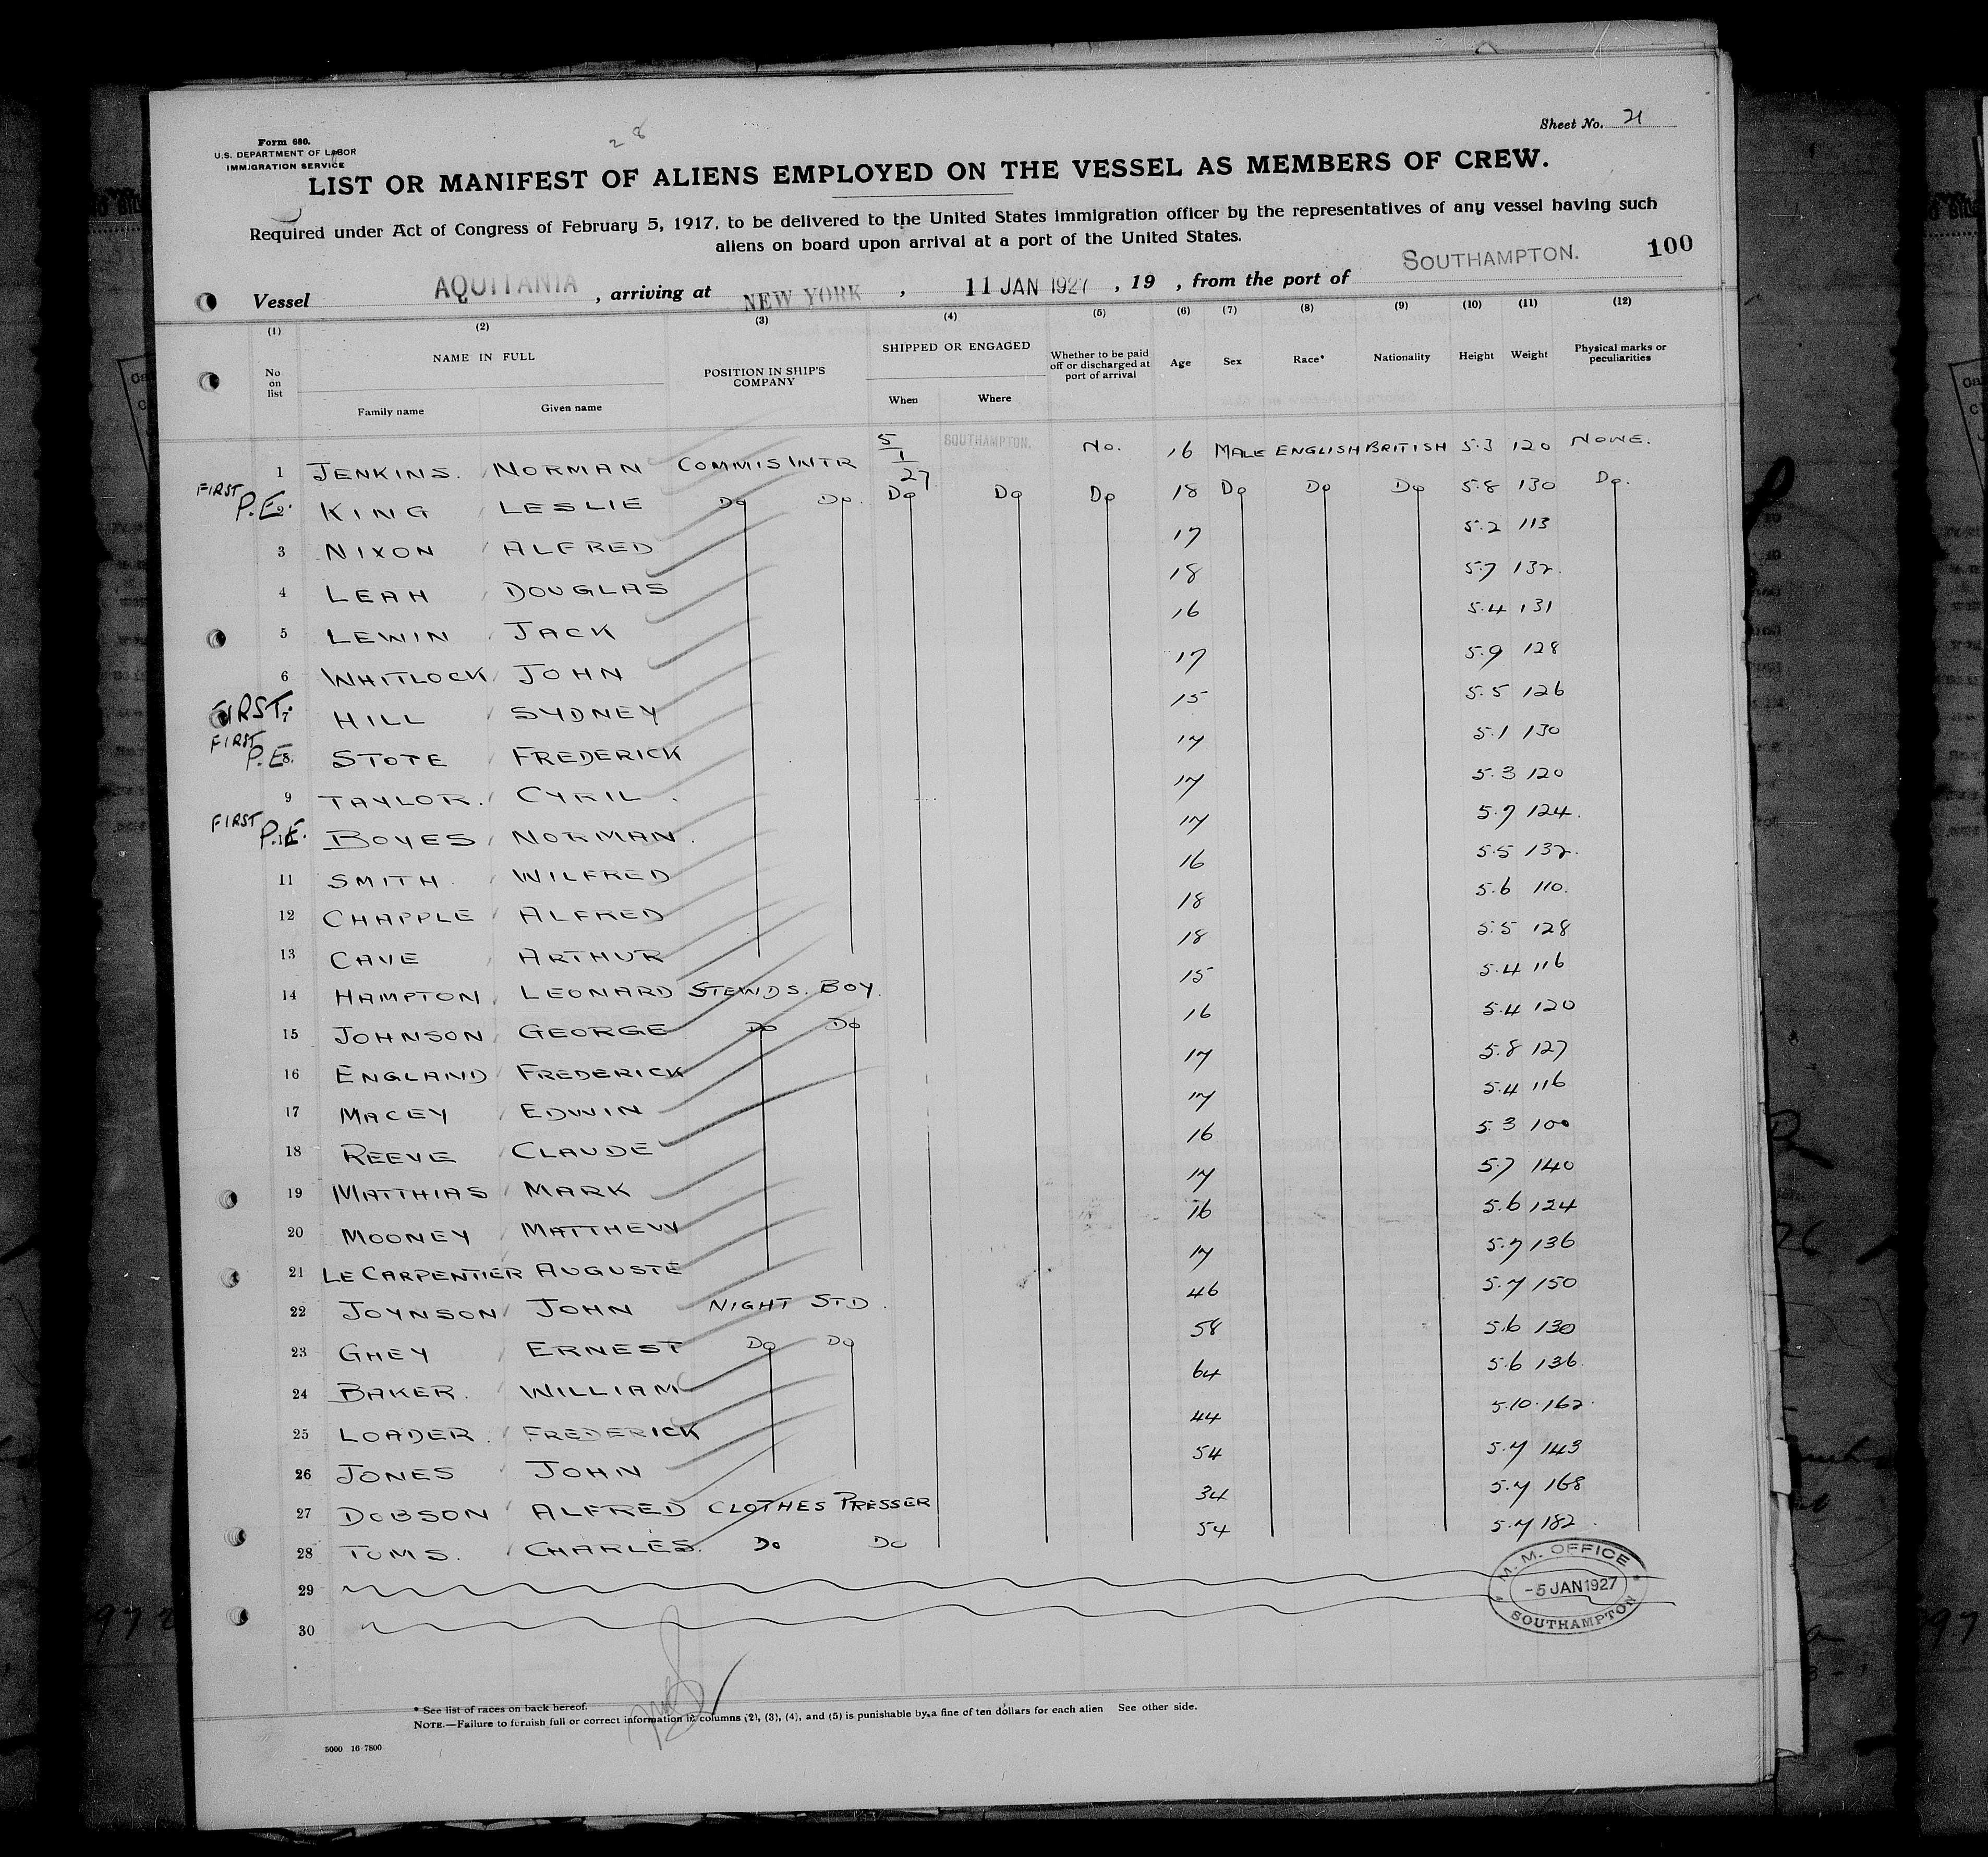 Sheet No. 21
Form 680.
U.S. DEPARTMENT OF LABOR
IMMIGRATION SERVICE
28
LIST OR MANIFEST OF ALIENS EMPLOYED ON THE VESSEL AS MEMBERS OF CREW.
Required under Act of Congress of February 5, 1917, to be delivered to the United States immigration officer by the representatives of any vessel having such
aliens on board upon arrival at a port of the United States.
100
Vessel AQUITANIA, arriving at NEW YORK, 11 JAN 1927, 19 , from the port of SOUTHAMPTON.
(1) (2) (3) (4) (5) (6) (7) (8) (9) (10) (11) (12)
No on list NAME IN FULL Family name Given name POSITION IN SHIP'S COMPANY SHIPPED OR ENGAGED When Where Whether to be paid off or discharged at port of arrival Age Sex Race* Nationality Height Weight Physical marks or peculiarities
1 JENKINS. NORMAN COMMIS WTR 5/1/27 SOUTHAMPTON. No. 16 MALE ENGLISH BRITISH 5.3 120 NONE.
FIRST P.E. 2 KING LESLIE Do Do. Do Do Do 18 Do Do Do 5.8 130 Do.
3 NIXON ALFRED 17 5.2 113
4 LEAH DOUGLAS 18 5.7 132.
5 LEWIN JACK 16 5.4 131
6 WHITLOCK JOHN 17 5.9 128
FIRST. 7 HILL SYDNEY 15 5.5 126
FIRST P.E. 8 STOTE FREDERICK 17 5.1 130
9 TAYLOR. CYRIL. 17 5.3 120
FIRST P.E. BOYES NORMAN. 17 5.7 124.
11 SMITH. WILFRED 16 5.5 132.
12 CHAPPLE ALFRED 18 5.6 110.
13 CAVE ARTHUR 18 5.5 128
14 HAMPTON LEONARD STEWDS. BOY. 15 5.4 116
15 JOHNSON GEORGE Do Do 16 5.4 120
16 ENGLAND FREDERICK 17 5.8 127
17 MACEY EDWIN 17 5.4 116
18 REEVE CLAUDE 16 5.3 100
19 MATTHIAS MARK 17 5.7 140
20 MOONEY MATTHEW 16 5.6 124
21 LE CARPENTIER AUGUSTE 17 5.7 136
22 JOYNSON JOHN NIGHT STD. 46 5.7 150
23 GHEY ERNEST Do Do 58 5.6 130
24 BAKER. WILLIAM 64 5.6 136.
25 LOADER. FREDERICK 44 5.10. 162.
26 JONES JOHN 54 5.7 143
27 DOBSON ALFRED CLOTHES PRESSER 34 5.7 168
28 TOMS. CHARLES. Do Do 54 5.7 182.
29
30
M. M. OFFICE
-5 JAN 1927
SOUTHAMPTON
* See list of races on back hereof.
NOTE.—Failure to furnish full or correct information in columns (2), (3), (4), and (5) is punishable by a fine of ten dollars for each alien See other side.
5000 16 7800